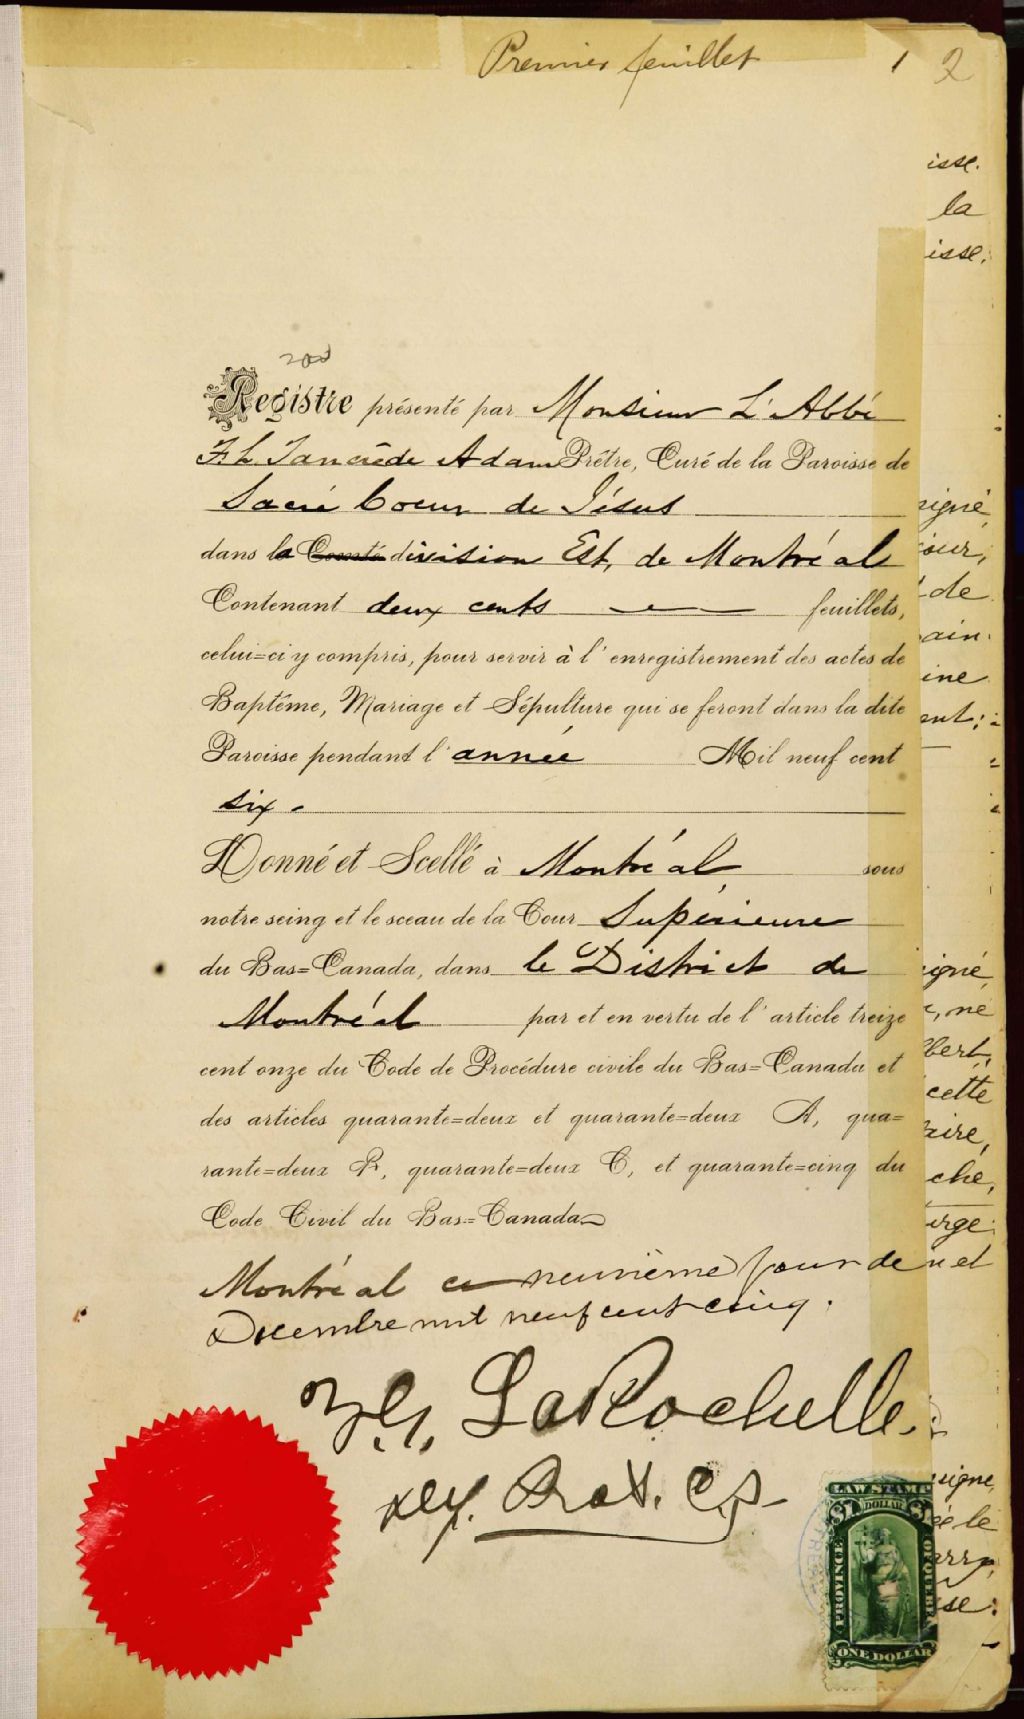 Premier feuillet 1 2
200
Registre présenté par Monsieur L'Abbé
F. L. Tancrède Adam Prêtre, Curé de la Paroisse de
Sacré Coeur de Jésus
dans la Comté division Est, de Montréal
Contenant deux cents feuillets,
celui=ci y compris, pour servir à l'enregistrement des actes de
Baptême, Mariage et Sépulture qui se feront dans la dite
Paroisse pendant l'année Mil neuf cent
six.
Donné et Scellé à Montréal sous
notre seing et le sceau de la Cour Supérieure
du Bas=Canada, dans le District de
Montréal par et en vertu de l'article treize
cent onze du Code de Procédure civile du Bas=Canada et
des articles quarante=deux et quarante=deux A, qua=
rante=deux B, quarante=deux C, et quarante=cinq du
Code Civil du Bas=Canada
Montréal ce neuvième jour de
Décembre mil neuf cent cinq.
LaRochelle.
Dep. Prot. C.S.
LAW STAMP
$1 DOLLAR $1
PROVINCE OF QUEBEC
ONE DOLLAR
isse.
la
isse.
signé,
jour,
de
ain.
ine
ent;
igné,
, né
lbert,
cette
aire,
che,
erge
n et
signé,
ée le
arry,
ise.